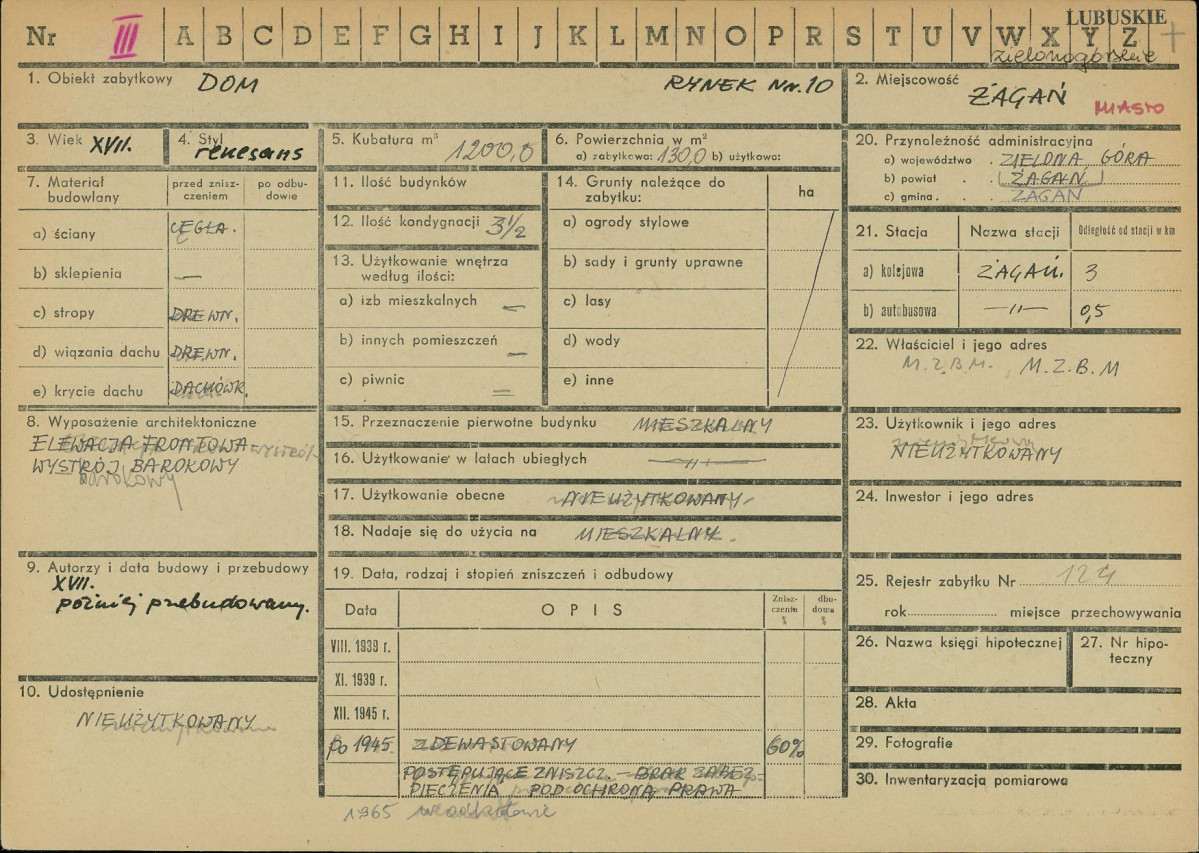 Nr III A B C D E F G H I J K L M N O P R S T U V W X Y Z
LUBUSKIE
zielonogórskie
1. Obiekt zabytkowy DOM RYNEK Nr. 10
2. Miejscowość ŻAGAŃ MIASTO
3. Wiek XVII.
4. Styl renesans
5. Kubatura m³ 1200,0
6. Powierzchnia w m²
a) zabytkowa: 130,0 b) użytkowa:
7. Materiał budowlany
przed zniszczeniem
po odbudowie
a) ściany CEGŁA.
b) sklepienia —
c) stropy DREWN.
d) wiązania dachu DREWN.
e) krycie dachu DACHÓWK.
8. Wyposażenie architektoniczne
ELEWACJA FRONTOWA
WYSTRÓJ BAROKOWY
barokowy
9. Autorzy i data budowy i przebudowy
XVII.
później przebudowany.
10. Udostępnienie
NIEUŻYTKOWANY
11. Ilość budynków
12. Ilość kondygnacji 3½
13. Użytkowanie wnętrza
według ilości:
a) izb mieszkalnych —
b) innych pomieszczeń —
c) piwnic =
14. Grunty należące do
zabytku:
ha
a) ogrody stylowe
b) sady i grunty uprawne
c) lasy
d) wody
e) inne
15. Przeznaczenie pierwotne budynku MIESZKALNY
16. Użytkowanie w latach ubiegłych —"—
17. Użytkowanie obecne NIEUŻYTKOWANY
18. Nadaje się do użycia na MIESZKALNY.
19. Data, rodzaj i stopień zniszczeń i odbudowy
Data OPIS Zniszczenia % dbudowa %
VIII. 1939 r.
XI. 1939 r.
XII. 1945 r.
po 1945. ZDEWASTOWANY 60%
POSTĘPUJĄCE ZNISZCZ. — BRAK ZABEZ-
PIECZENIA POD OCHRONĄ PRAWA
1965
20. Przynależność administracyjna
a) województwo . ZIELONA GÓRA
b) powiat . . ŻAGAŃ
c) gmina . . ŻAGAŃ
21. Stacja Nazwa stacji Odległość od stacji w km
a) kolejowa ŻAGAŃ. 3
b) autobusowa —"— 0,5
22. Właściciel i jego adres
M.Z.B.M. M.Z.B.M
23. Użytkownik i jego adres
NIEUŻYTKOWANY
24. Inwestor i jego adres
25. Rejestr zabytku Nr
rok miejsce przechowywania
26. Nazwa księgi hipotecznej
27. Nr hipo-
teczny
28. Akta
29. Fotografie
30. Inwentaryzacja pomiarowa